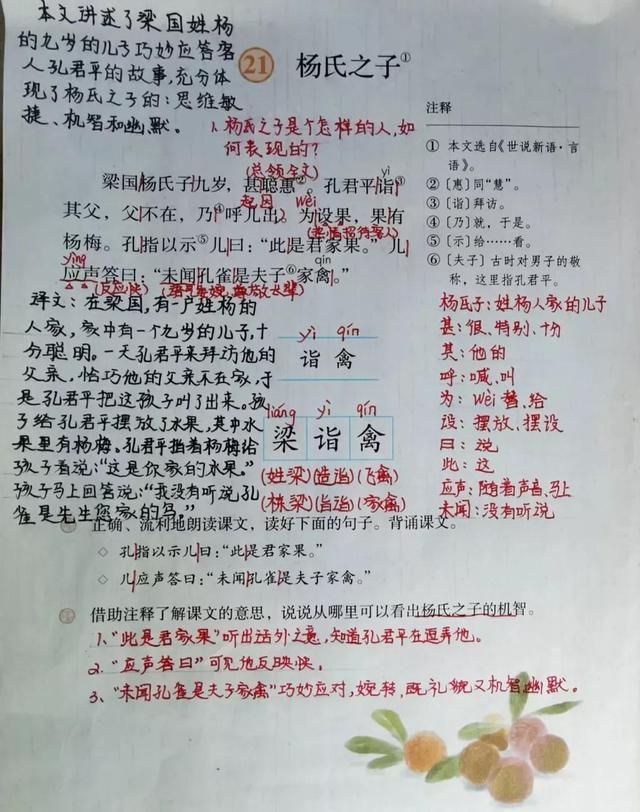 本文讲述了梁国姓杨
的九岁的儿子巧妙应答客
人孔君平的故事,充分体
现了杨氏之子的:思维敏
捷、机智和幽默。
21 杨氏之子①
1、杨氏之子是个怎样的人,如
何表现的?
(总领全文)
yì
梁国杨氏子九岁,甚聪惠②。孔君平诣③
起因 wèi
其父,父不在,乃④呼儿出。为设果,果有
(热情招待客人)
杨梅。孔指以示⑤儿曰:“此是君家果。”儿
yìng qín
应声答曰:“未闻孔雀是夫子⑥家禽。”
(反应快)
注释
① 本文选自《世说新语·言
语》。
② 〔惠〕同“慧”。
③ 〔诣〕拜访。
④ 〔乃〕就,于是。
⑤ 〔示〕给……看。
⑥ 〔夫子〕古时对男子的敬
称,这里指孔君平。
译文:在梁国,有一户姓杨的
人家,家中有一个九岁的儿子,十
分聪明。一天孔君平来拜访他的
父亲,恰巧他的父亲不在家,于
是孔君平把这孩子叫了出来。孩
子给孔君平摆放了水果,其中水
果里有杨梅。孔君平指着杨梅给
孩子看说:“这是你家的水果。”
孩子马上回答说:“我没有听说,孔
雀是先生您家的鸟。”
yì qín
诣 禽
liáng yì qín
梁 诣 禽
(姓梁)(造诣)(飞禽)
(栋梁)(旨诣)(家禽)
杨氏子:姓杨人家的儿子
甚:很、特别、十分
其:他的
呼:喊、叫
为:wèi 替、给
设:摆放、摆设
曰:说
此:这
应声:随着声音、马上
未闻:没有听说
正确、流利地朗读课文,读好下面的句子。背诵课文。
◇ 孔指以示儿曰:“此是君家果。”
◇ 儿应声答曰:“未闻孔雀是夫子家禽。”
借助注释了解课文的意思,说说从哪里可以看出杨氏之子的机智。
1、“此是君家果”听出话外之意,知道孔君平在逗弄他。
2、“应声答曰”可见他反映快。
3、“未闻孔雀是夫子家禽”巧妙应对,婉转,既礼貌又机智幽默。